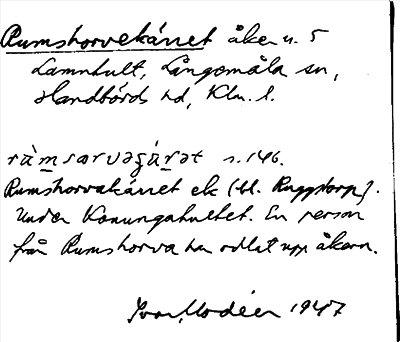 Rumshorvekärret åker u. 5
Lamnhult, Långemåla sn,
Handbörds hd, Klm. l.
ràmsarvəʒárət s. 146.
Rumshorvakärret ek (bl. Ruggstorp).
Under Konungahultet. En person
från Rumshorva har odlat upp åkern.
Ivar Modéer 1947